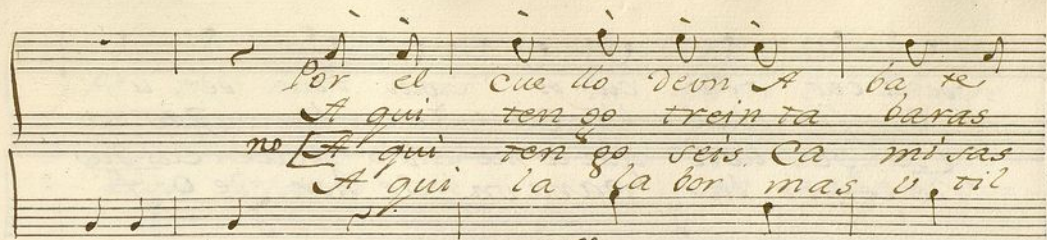 Por el cue llo deun A ba te
A qui ten go trein ta baras
no [A qui ten go seis Ca mi sas
A qui la la bor mas u til